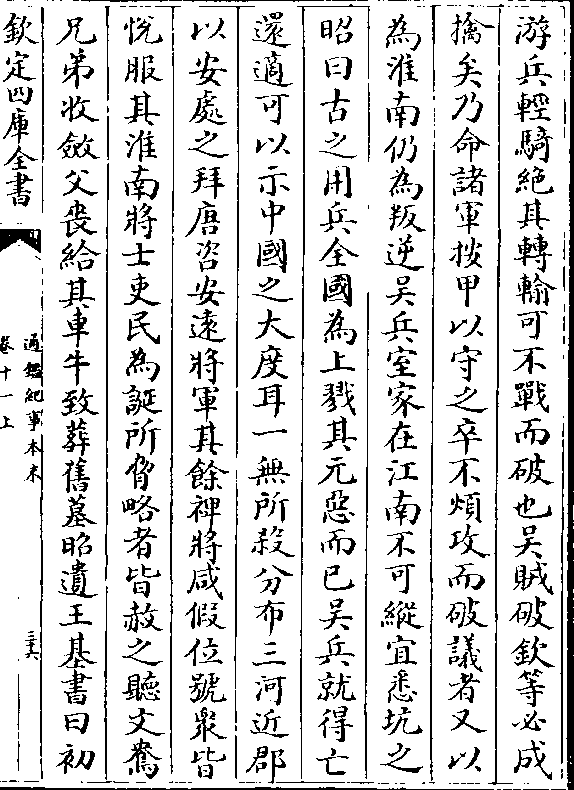 游兵輕騎絶其轉輸可不戰而破也吳賊破欽等必成
擒矣乃命諸軍按甲以守之卒不煩攻而破議者又以
為淮南仍為叛逆吳兵室家在江南不可縱宜悉坑之
昭曰古之用兵全國為上戮其元惡而已吳兵就得亡
還適可以示中國之大度耳一無所殺分布三河近郡
以安處之拜唐咨安遠將軍其餘裨將咸假位號衆皆
悅服其淮南將士吏民為誕所脅略者皆赦之聽文鴦
兄弟收斂父喪給其車牛致葬舊墓昭遺王基書曰初
欽定四庫全書
通鑑紀事本末
卷十一上
三六